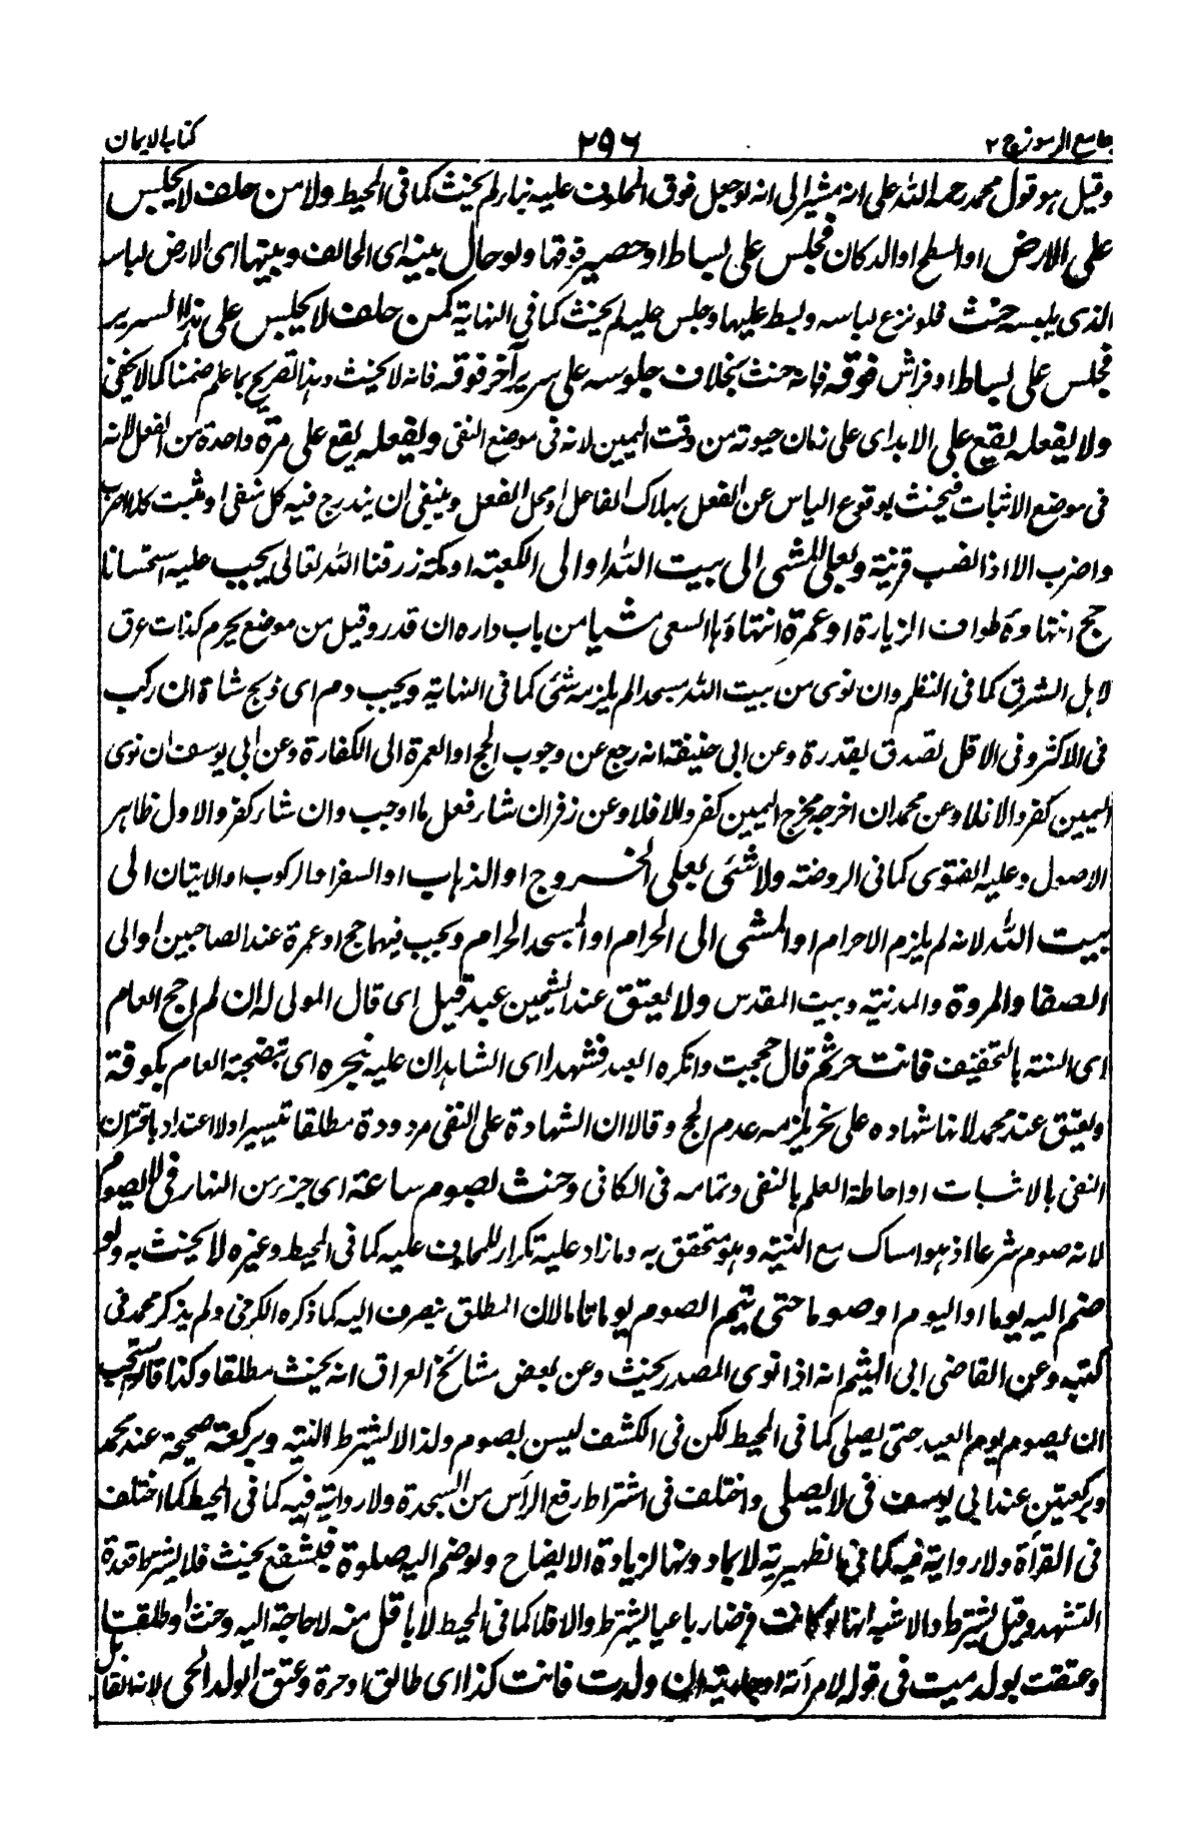 جامع الرموز ج ٢
٢٩٦
كتاب الايمان
وقيل هو قول محمد رحمه الله على انه مشير الى انه لو جعل فوق المحلوف عليه بناء لم يحنث كما فى المحيط ولا من حلف لا يجلس
على الارض او السطح او الدكان فجلس على بساط او حصير فوقها ولو حال بينه اى الحالف وبينها اى الارض لباسه
الذى يلبسه حنث فلو نزع لباسه وبسط عليها وجلس عليه لم يحنث كما فى النهاية كمن حلف لا يجلس على هذا السرير
فجلس على بساط او فراش فوقه فانه حنث بخلاف جلوسه على سرير آخر فوقه فانه لا يحنث وهذا تصريح بما علم ضمنا كما لا يخفى
ولا يفعله يقع على الابد اى على زمان حيوته من وقت اليمين لانه فى موضع النفى وليفعله يقع على مرة واحدة من الفعل لانه
فى موضع الاثبات فيحنث بوقوع الياس عن الفعل بهلاك الفاعل او محل الفعل وينبغى ان يندرج فيه كل منفى او مثبت كلا اضرب
واضرب الا اذا نصب قرينة وبعلى المشى الى بيت الله او الى الكعبة او مكة رزقنا الله تعالى يجب عليه استحسانا
حج انتهاؤه طواف الزيارة او عمرة انتهاؤها السعى مشيا من باب داره ان قدر وقيل من موضع يحرم كذات عرق
لاهل الشرق كما فى النظم وان نوى من بيت الله مسجدا لم يلزمه شئ كما فى النهاية ويجب دم اى ذبح شاة ان ركب
فى الاكثر وفى الاقل تصدق بقدره وعن ابى حنيفة انه رجع عن وجوب الحج او العمرة الى الكفارة وعن ابى يوسف ان نوى
اليمين كفر والا فلا وعن محمد ان اخرجه مخرج اليمين كفر والا فلا وعن زفر ان شاء فعل ما اوجب وان شاء كفر والاول ظاهر
الاصول وعليه الفتوى كما فى الروضة ولا شئ بعلى الخروج او الذهاب او السفر او الركوب او الاتيان الى
بيت الله لانه لم يلزم الاحرام او المشى الى الحرام او المسجد الحرام ويجب فيهما حج او عمرة عند الصاحبين او الى
الصفا والمروة والمدينة وبيت المقدس ولا يعتق عند الشيخين عبد قيل اى قال المولى له ان لم احج العام
اى السنة بالتخفيف فانت حر ثم قال حججت وانكره العبد فشهدا اى الشاهدان عليه بنحره اى تضحية العام بكوفة
ويعتق عند محمد لانها شهاده على نحر يلزمه عدم الحج وقالا ان الشهادة على النفى مردودة مطلقا تيسيرا ولا اعتداد باقتران
النفى بالاثبات او احاطة العلم بالنفى وتمامه فى الكافى وحنث لصوم ساعة اى جزء من النهار فى لا يصوم
لانه صوم شرعا اذ هو امساك مع النية وهو متحقق به وما زاد عليه تكرار للمحلوف عليه كما فى المحيط وغيره لا يحنث به ولو
ضم اليه يوما او اليوم او صوما حتى يتم الصوم يوما تاما لان المطلق ينصرف اليه كما ذكره الكرخى ولم يذكر محمد فى
كتبه وعن القاضى ابى الهيثم انه اذا نوى المصدر يحنث وعن بعض مشائخ العراق انه يحنث مطلقا وكذا قالوا يستحب
ان يصوم يوم العيد حتى يصلى كما فى المحيط لكن فى الكشف ليس بصوم ولذا لا يشترط النية وبركعة صحيحة عند محمد
وبركعتين عند ابى يوسف فى لا يصلى واختلف فى اشتراط رفع الرأس من السجدة ولا رواية فيه كما فى المحيط كما اختلف
فى القرأة ولا رواية فيه كما فى الظهيرية لا بما دونها لزيادة الايضاح ولو ضم اليه صلوة فبشفع يحنث فلا يشترط قعدة
التشهد وقيل يشترط والاشبه انها لو كانت فرضا رباعيا يشترط والا فلا كما فى المحيط لا باقل منه لا حاجة اليه وحنث او طلقت
وعتقت بولد ميت فى قوله لامرأته او جاريته ان ولدت فانت كذا اى طالق او حرة وعتق الولد الحى لانه القابل